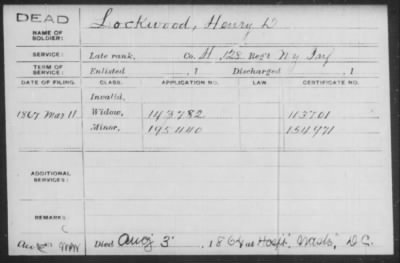 DEAD
NAME OF SOLDIER: Lockwood, Henry D
SERVICE: Late rank, Co. H, 128 Reg't N.Y. Inf
TERM OF SERVICE: Enlisted , 1 Discharged , 1
DATE OF FILING. CLASS. APPLICATION NO. LAW. CERTIFICATE NO.
Invalid,
1867 Mar 11 Widow, 143782 113701
Minor, 195440 154971
ADDITIONAL SERVICES:
REMARKS:
Died Aug 3 , 186 at Hosp, Wash, D.C.